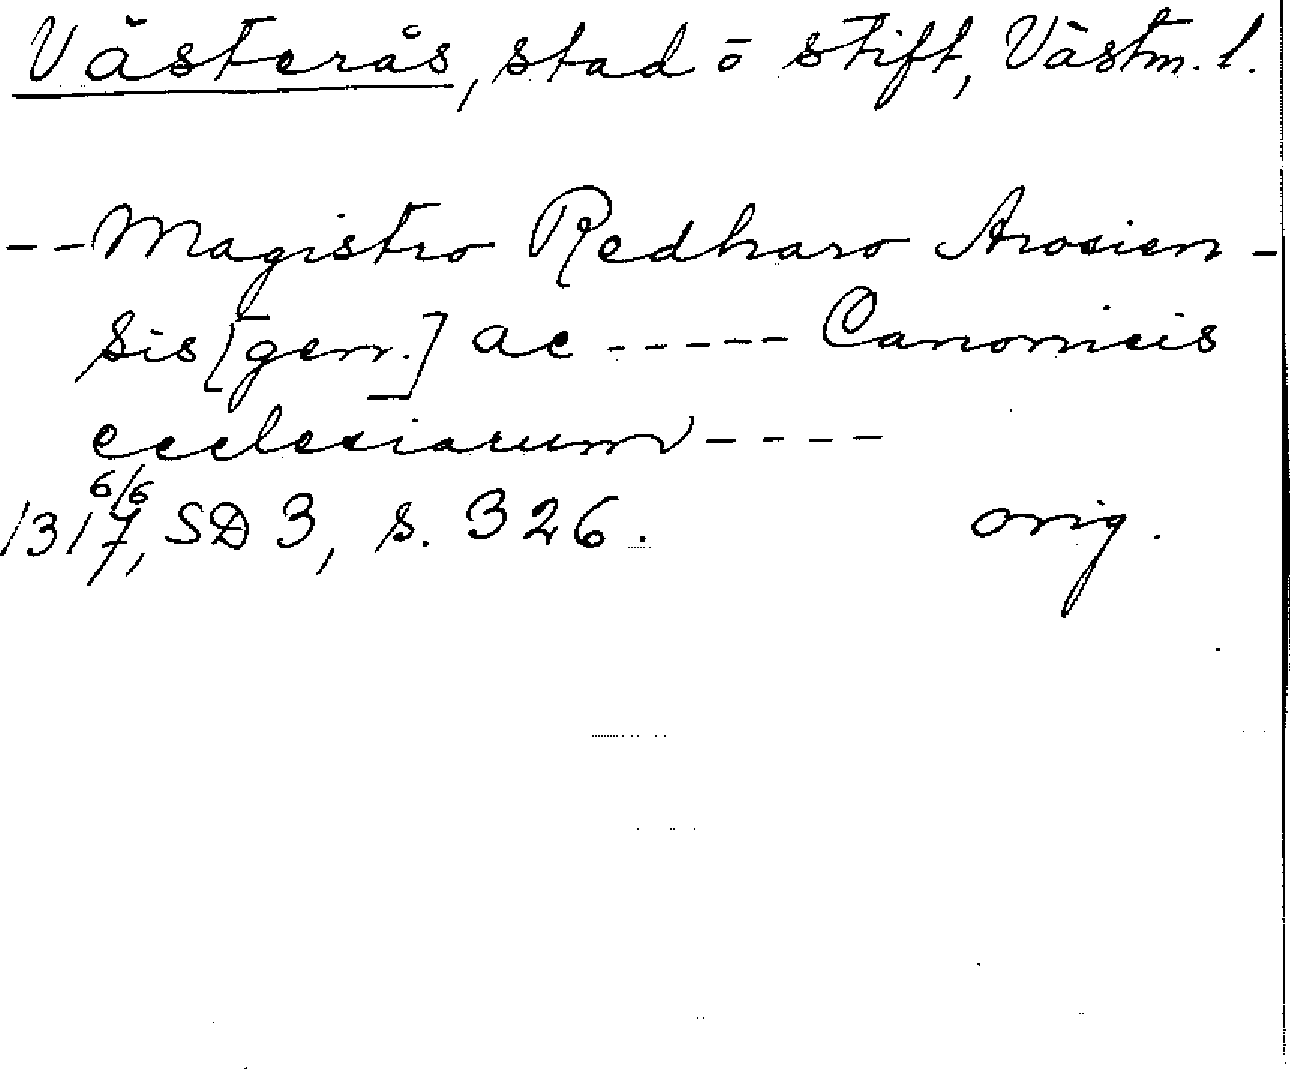 Västerås, stad o stift, Västm. l.
--Magistro Redharo Arosien-
sis [gen.] ac ----- Canonicis
ecclesiarum ----
6/6
1317, SD 3, s. 326. orig.